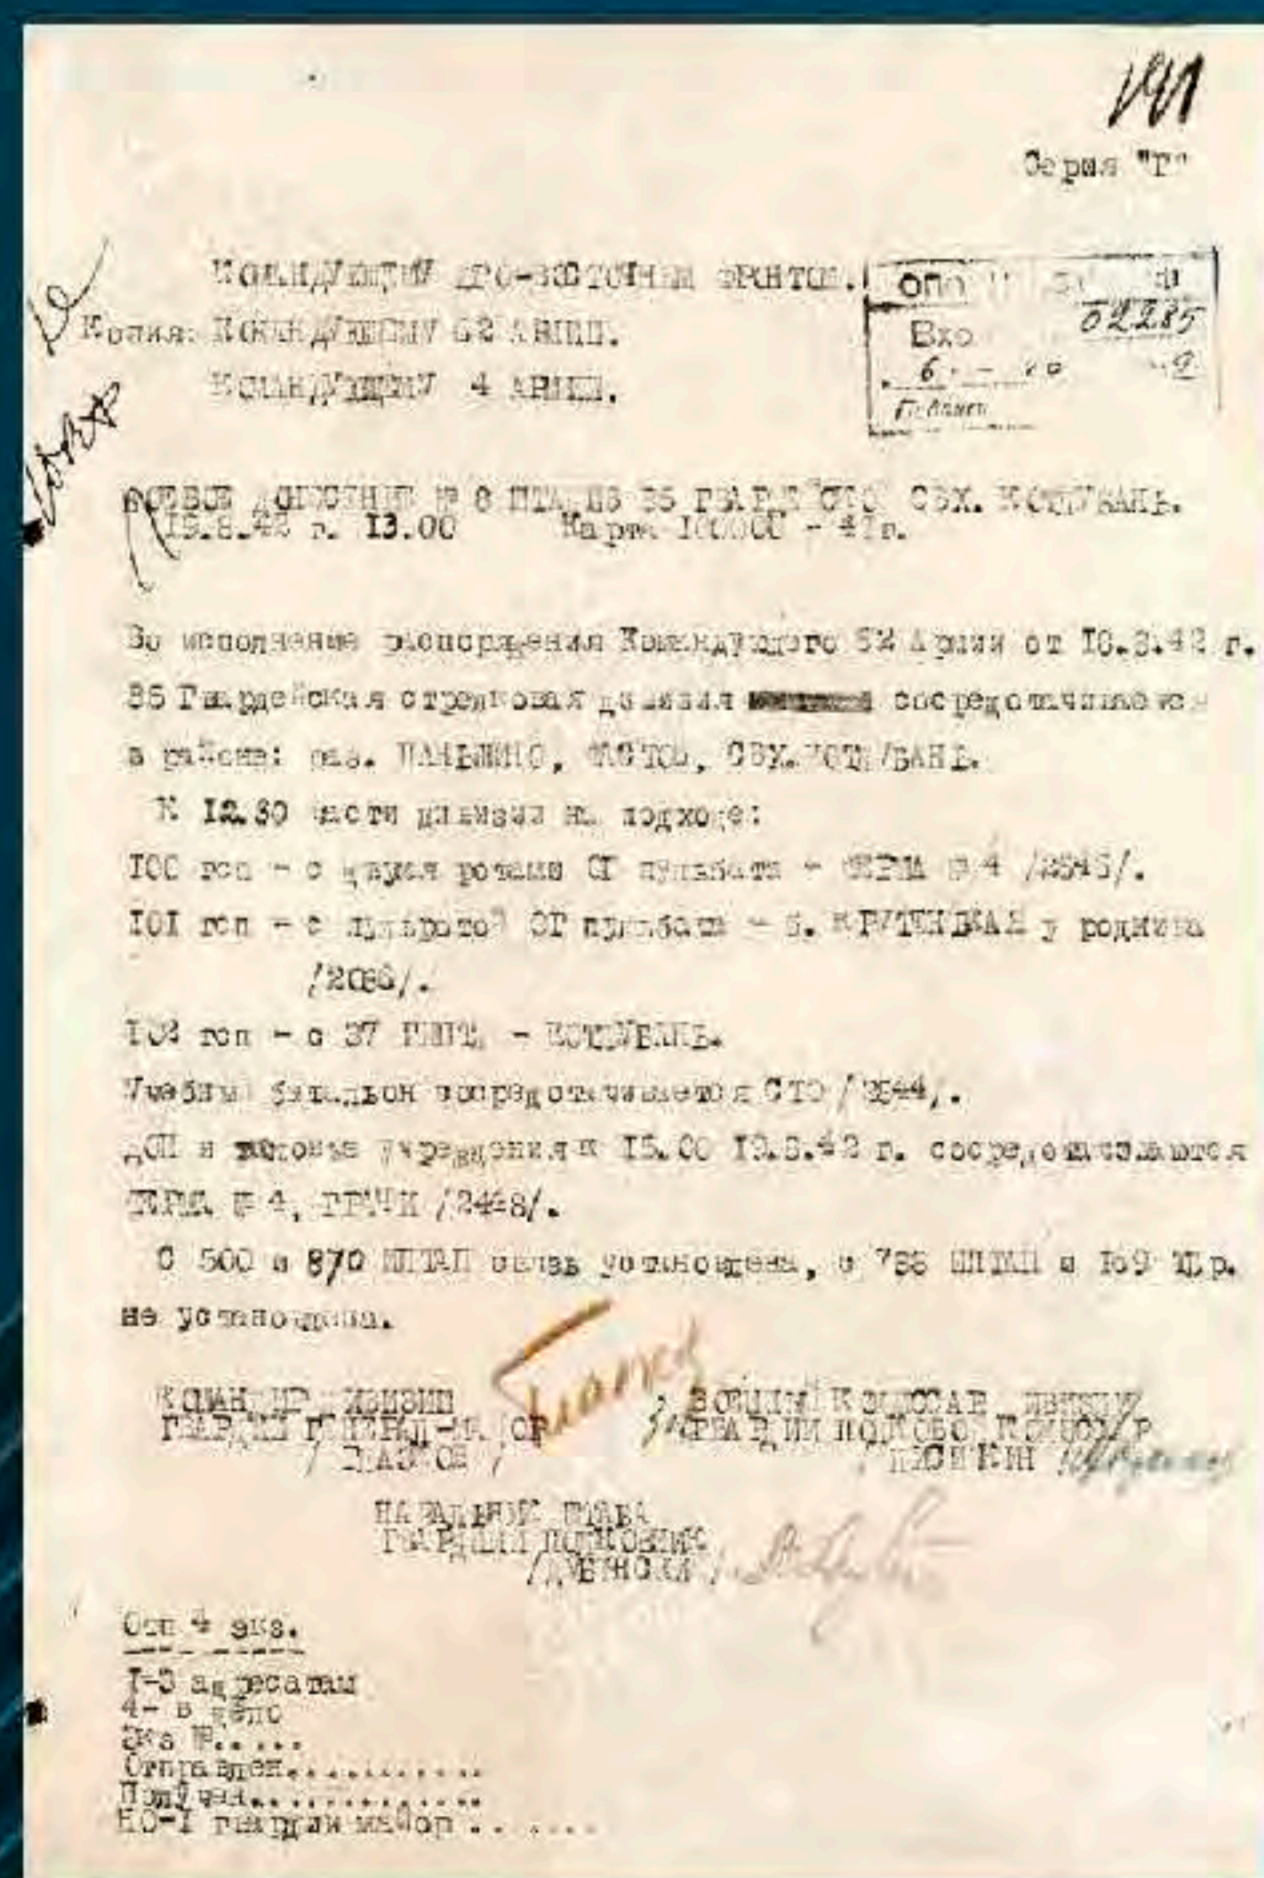 191
Серия "Г"
КОМАНДУЮЩЕМУ ЮГО-ВОСТОЧНЫМ ФРОНТОМ.
Копия: КОМАНДУЮЩЕМУ 62 АРМИИ.
КОМАНДУЮЩЕМУ 4 АРМИИ.
Вхо 02285
БОЕВОЕ ДОНЕСЕНИЕ № 8 35 СВХ. КОТЛУБАНЬ.
19.8.42 г. 13.00 Карта 100000 - 41 г.
Во исполнение распоряжения Командующего 62 Армии от 18.8.42 г.
35 Гвардейская стрелковая дивизия сосредотачивается
в районе: раз. ПАНЬШИНО, СВХ. КОТЛУБАНЬ.
К 12.30 части дивизии на подходе:
100 гсп - с двумя ротами ОГ пульбата - ФЕРМА № 4 /2546/.
101 гсп - с пульротой ОГ пульбата - б. у родника
/2036/.
102 гсп - с 37 - КОТЛУБАНЬ.
Учебный батальон сосредотачивается СТО /2544/.
ДОП и тыловые учреждения к 15.00 19.8.42 г. сосредотачиваются
ФЕРМА № 4, ГРАЧИ /2448/.
С 500 и 870 ИПТАП связь установлена, с 738 ИПТАП и 169
не установлена.
КОМАНДИР ДИВИЗИИ
ГВАРДИИ ГЕНЕРАЛ-МАЙОР
/ ГЛАЗКОВ /
ВОЕННЫЙ КОМИССАР ДИВИЗИИ
ГВАРДИИ ПОЛКОВОЙ КОМИССАР
НАЧАЛЬНИК ШТАБА
ГВАРДИИ ПОЛКОВНИК
/ДУБЯНСКИЙ/
Отп 4 экз.
1-3 адресатам
4- в дело
Экз №.....
Отправлен...........
Получен.............
НО-1 гвардии майор .......